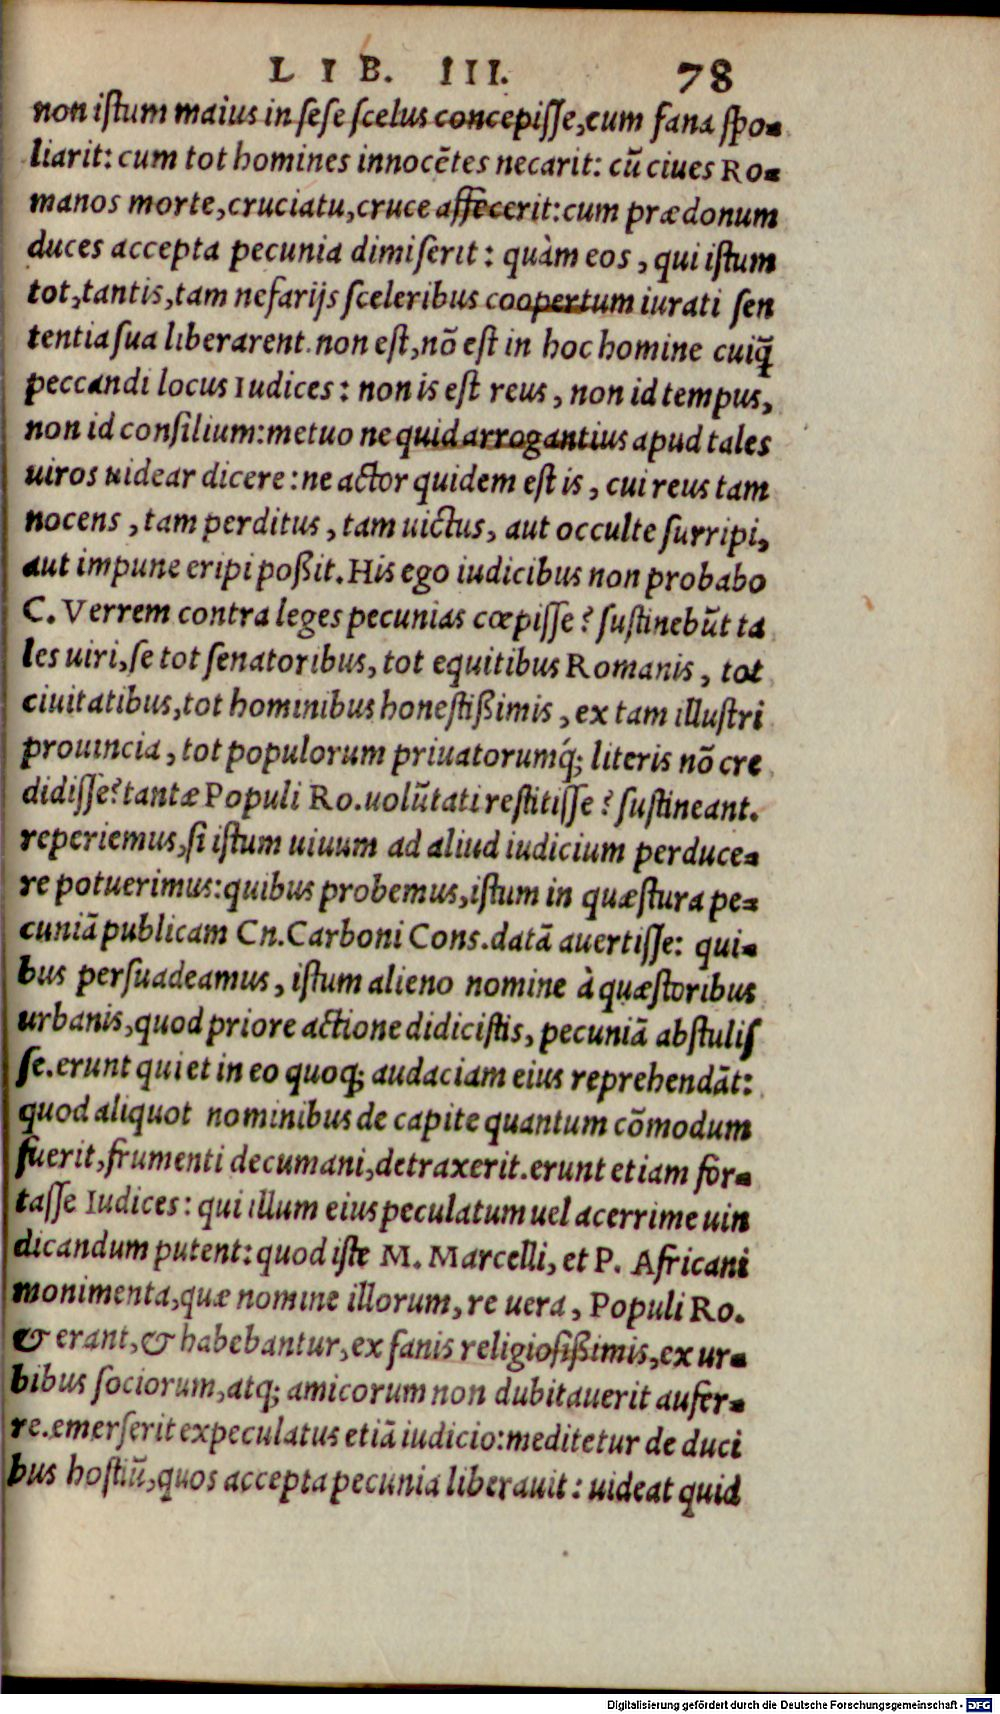 LIB. III. 78
non istum maius in sese scelus concepisse, cum fana spo-
liarit: cum tot homines innocẽtes necarit: cũ ciues Ro-
manos morte, cruciatu, cruce affecerit: cum prædonum
duces accepta pecunia dimiserit: quàm eos, qui istum
tot, tantis, tam nefarijs sceleribus coopertum iurati sen
tentia sua liberarent. non est, nõ est in hoc homine cuiq̃
peccandi locus Iudices: non is est reus, non id tempus,
non id consilium: metuo ne quid arrogantius apud tales
uiros uidear dicere: ne actor quidem est is, cui reus tam
nocens, tam perditus, tam uictus, aut occulte surripi,
aut impune eripi poßit. His ego iudicibus non probabo
C. Verrem contra leges pecunias cœpisse? sustinebũt ta
les uiri, se tot senatoribus, tot equitibus Romanis, tot
ciuitatibus, tot hominibus honestißimis, ex tam illustri
prouincia, tot populorum priuatorumq́; literis nõ cre
didisse? tantæ Populi Ro. uolũtati restitisse? sustineant.
reperiemus, si istum uiuum ad aliud iudicium perduce-
re potuerimus: quibus probemus, istum in quæstura pe-
cuniã publicam Cn. Carboni Cons. datã auertisse: qui-
bus persuadeamus, istum alieno nomine à quæstoribus
urbanis, quod priore actione didicistis, pecuniã abstulis
se. erunt qui et in eo quoq; audaciam eius reprehendãt:
quod aliquot nominibus de capite quantum cõmodum
fuerit, frumenti decumani, detraxerit. erunt etiam for-
tasse Iudices: qui illum eius peculatum uel acerrime uin
dicandum putent: quod iste M. Marcelli, et P. Africani
monimenta, quæ nomine illorum, re uera, Populi Ro.
& erant, & habebantur, ex fanis religiosißimis, ex ur-
bibus sociorum, atq; amicorum non dubitauerit aufer-
re. emerserit ex peculatus etiã iudicio: meditetur de duci
bus hostiũ, quos accepta pecunia liberauit: uideat quid
Digitalisierung gefördert durch die Deutsche Forschungsgemeinschaft - DFG